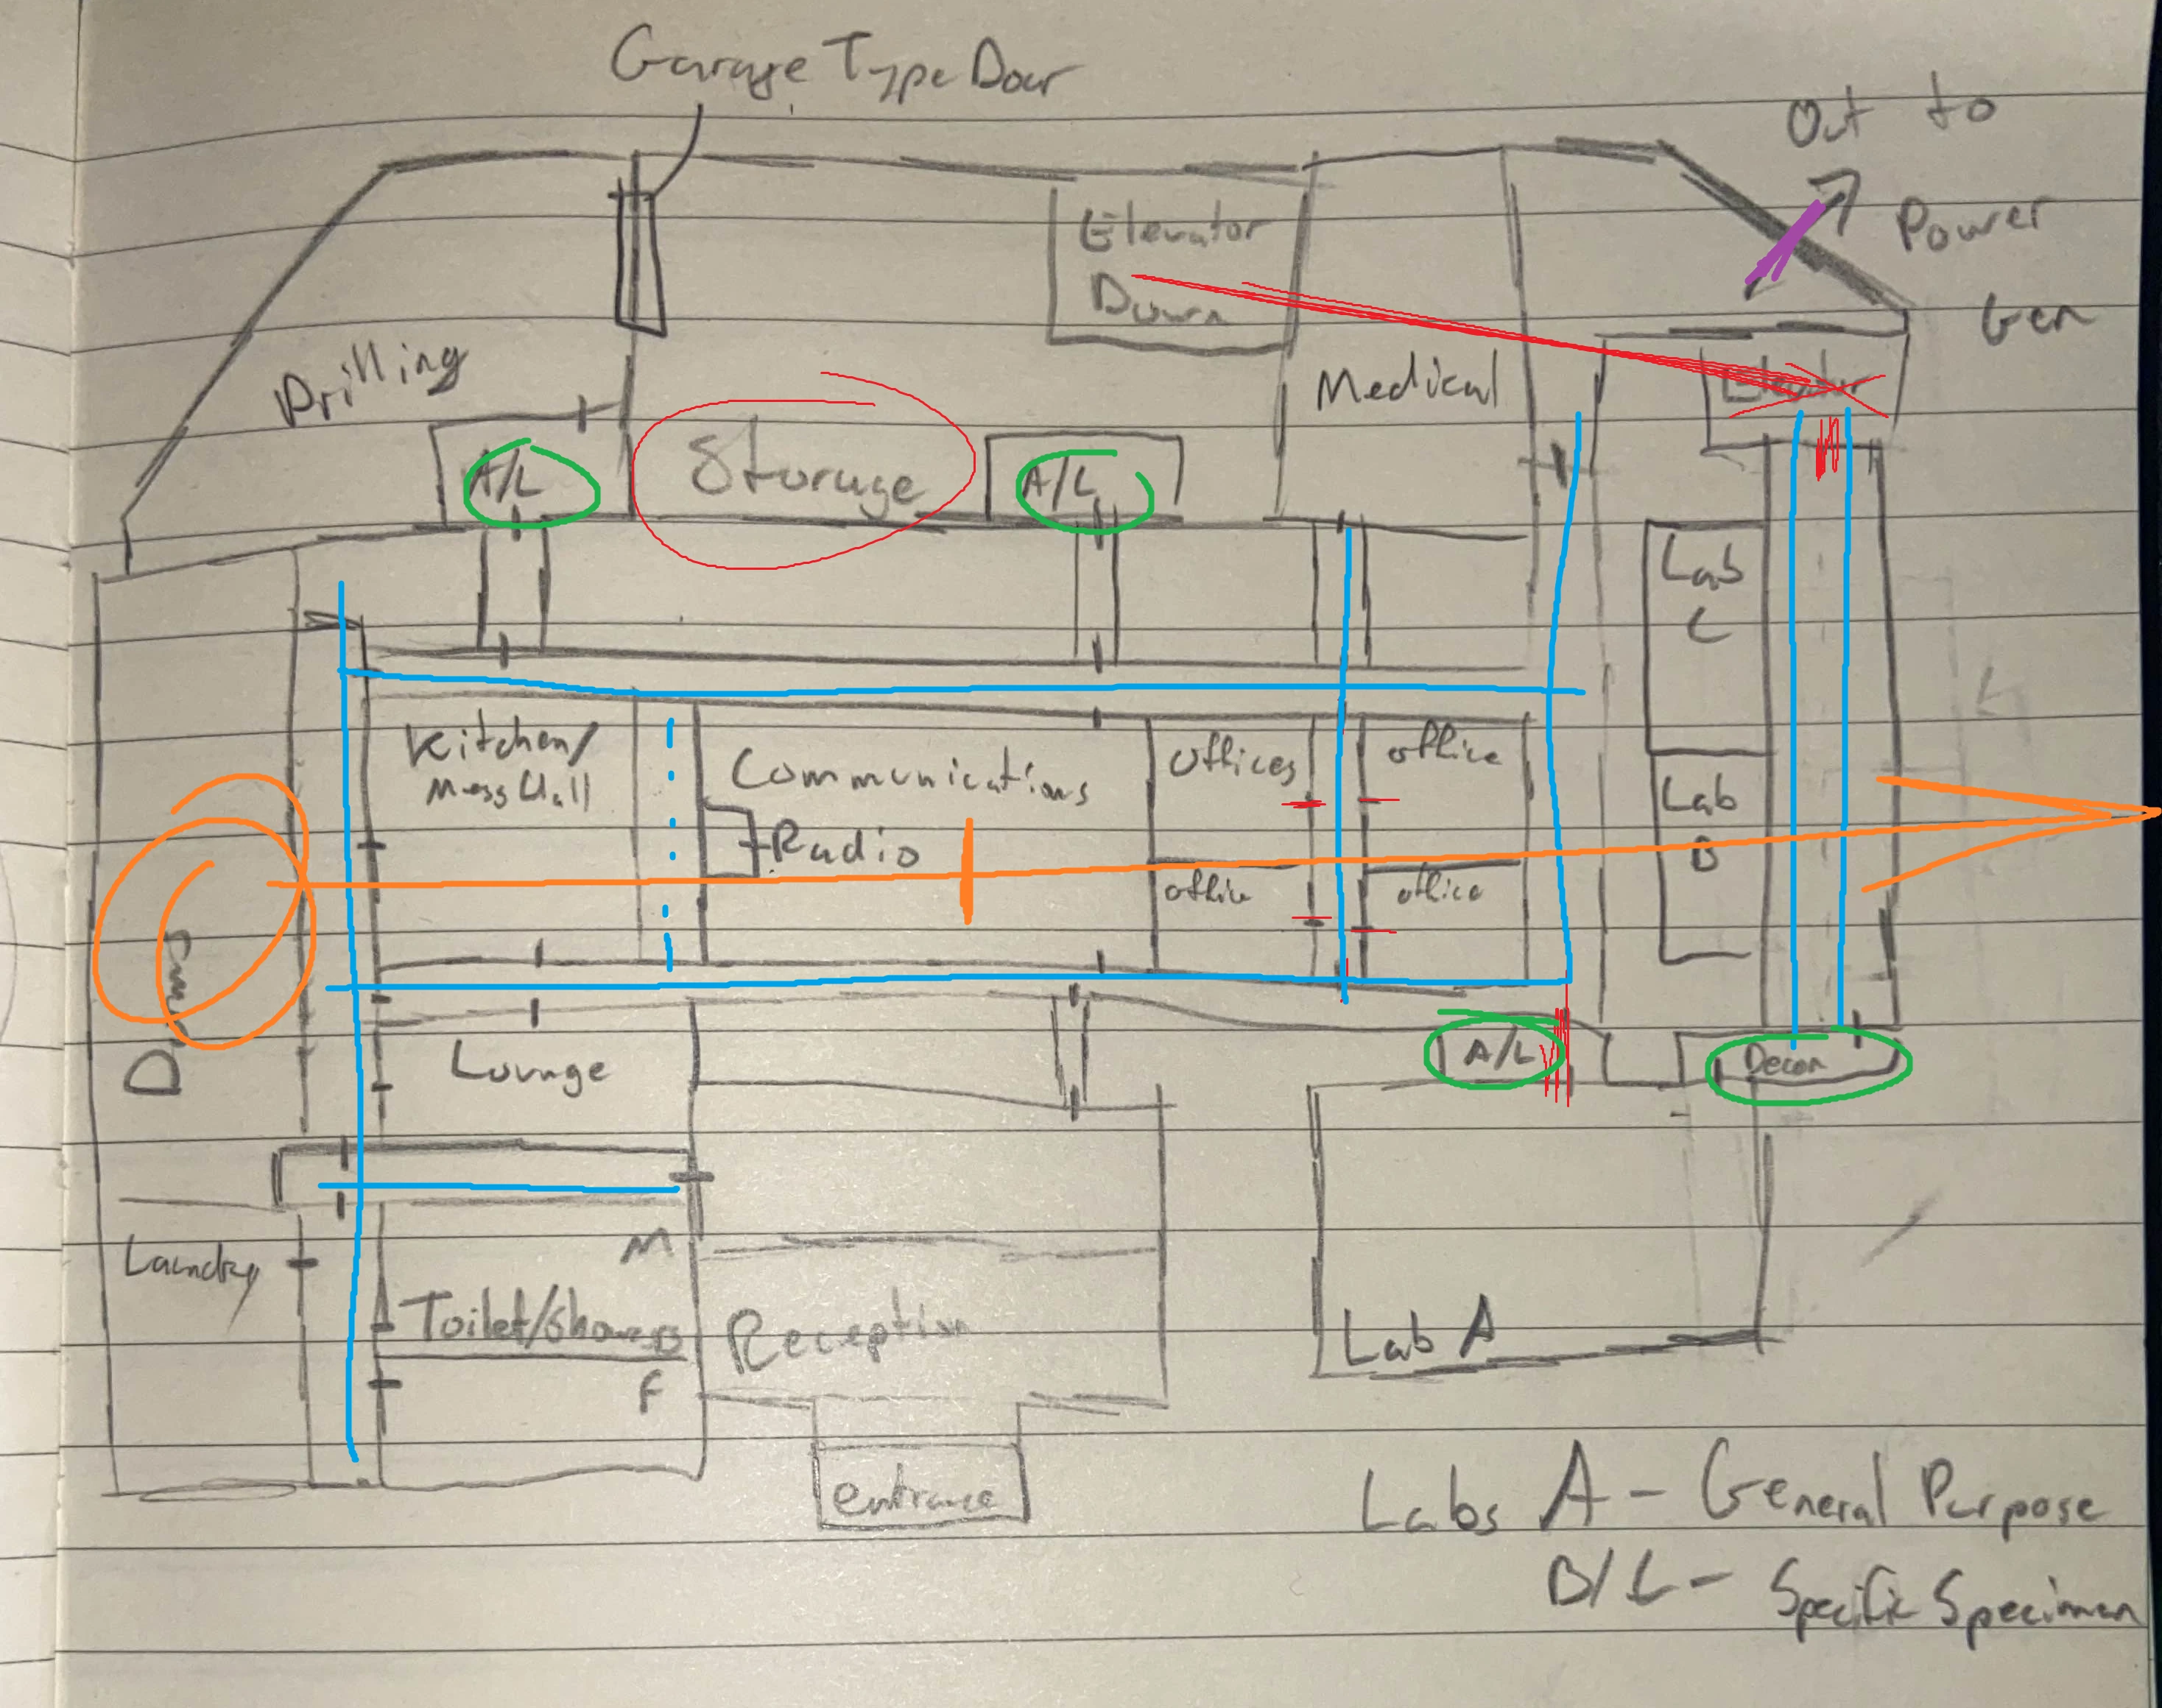 Garage Type Door
Out to
Power
Gen
Elevator
Down
Drilling
Medical
Elevator
A/L
Storage
A/L
Lab
C
Kitchen/
Mess Hall
Communications
Offices
office
Lab
B
Radio
office
office
Lounge
A/L
Decon
Laundry
M
Toilet/Showers
F
Reception
Lab A
entrance
Labs A - General Purpose
B/C - Specific Specimen